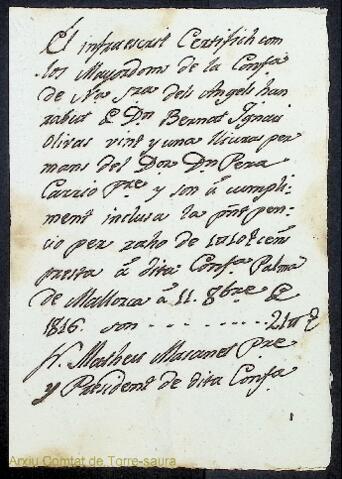 El infraescrit Certifich com
los Mayordoms de la Confa
de Na Sra dels Angels han
rabut P Dn Bernat Ignaci
Olivas vint y una lliuras per
mans del Dor Dn Pera
Carrio pre y son â cumpli-
ment inclusa la pnt pen-
cio per raho de cens
presta â dita Confa Palma
de Mallorca â 11. 8bre
1816. son - - - - - - - - - - 21
Matheu Masanet Pre
y President de dita Confa
1
Arxiu Comtat de Torre-saura